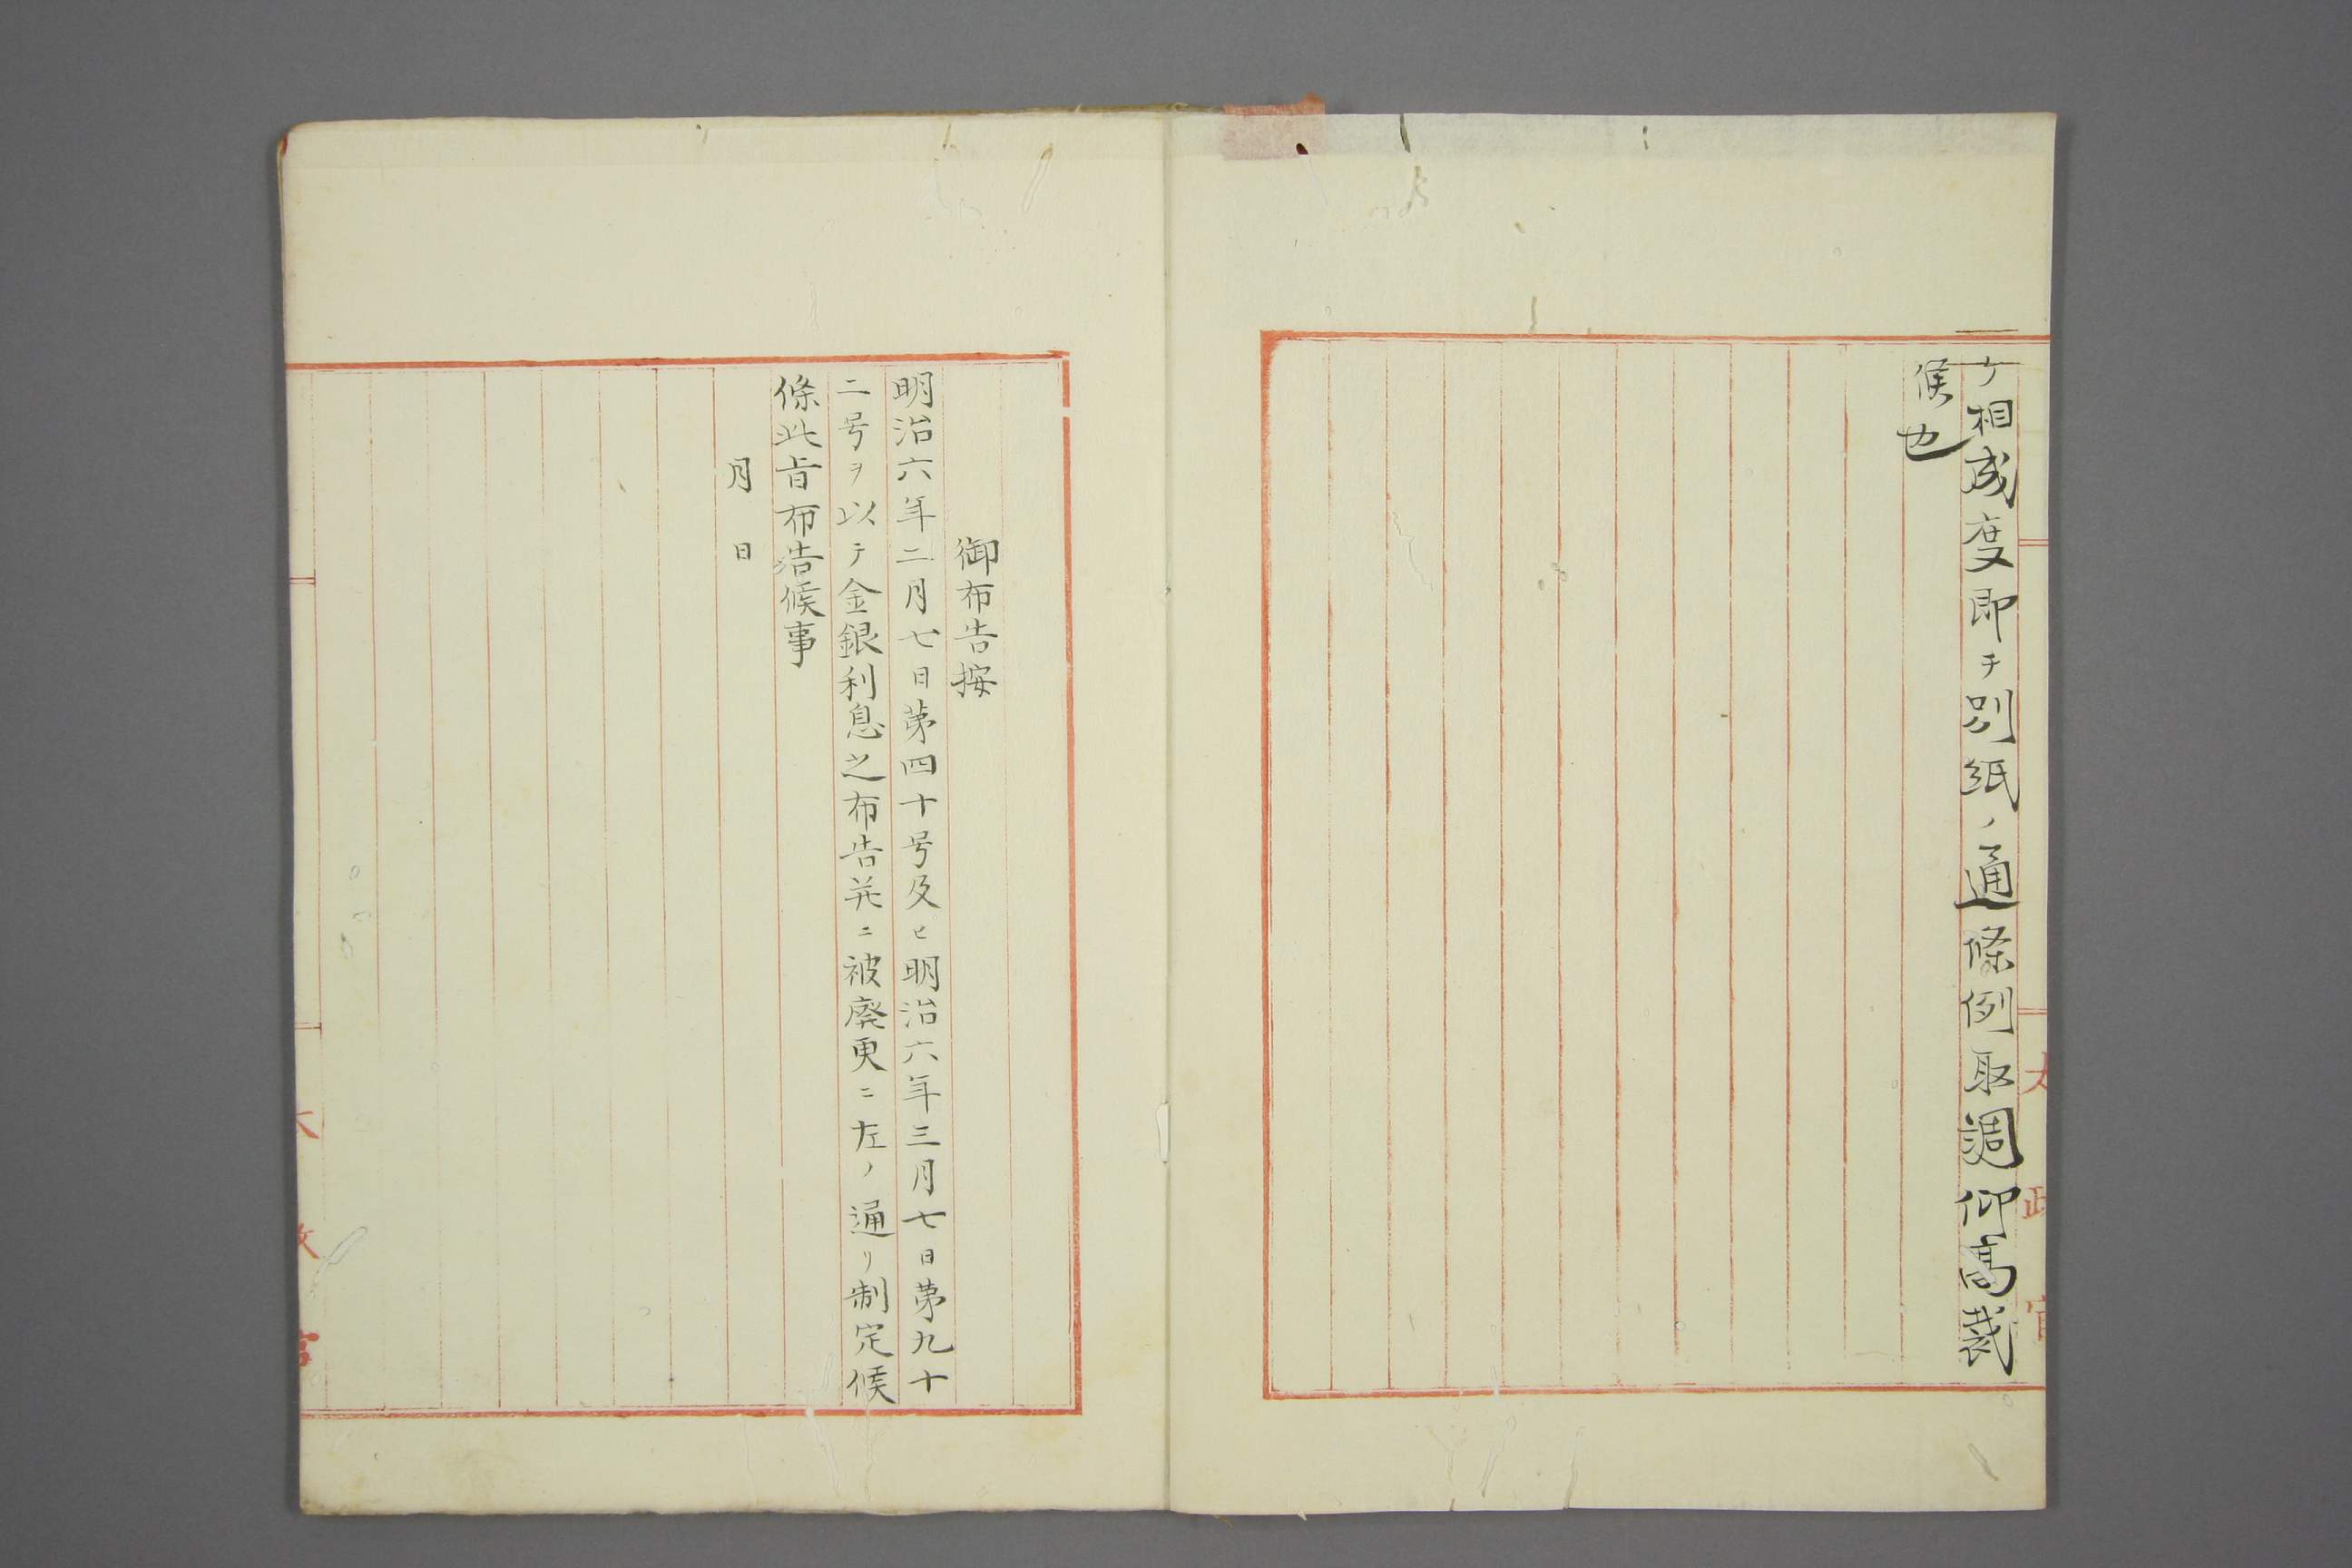 ケ相成度即チ別紙ノ通條例取調仰高裁
候也
太政官
御布告按
明治六年二月七日第四十号及ヒ明治六年三月七日第九十
二号ヲ以テ金銀利息之布告共ニ被廃更ニ左ノ通リ制定候
條此旨布告候事
月日
太政官